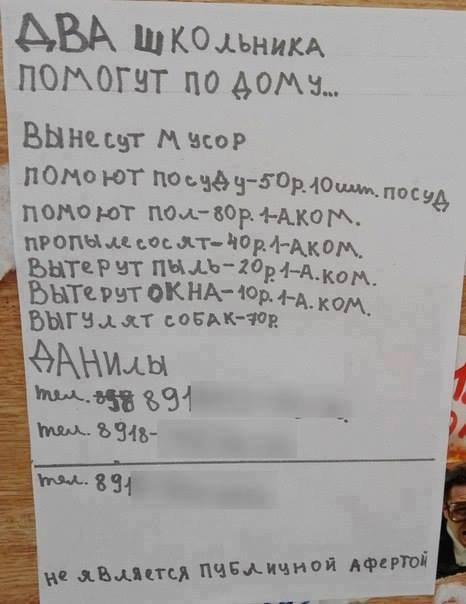 ДВА ШКОЛЬНИКА
ПОМОГУТ ПО ДОМУ...
ВЫНЕСУТ МУСОР
ПОМОЮТ ПОСУДУ-50р.10шт.ПОСУД
ПОМОЮТ ПОЛ-80р.1-А.КОМ.
ПРОПЫЛЕСОСЯТ-40р.1-А.КОМ.
ВЫТЕРУТ ПЫЛЬ-20р.1-А.КОМ.
ВЫТЕРУТ ОКНА-10р.1-А.КОМ.
ВЫГУЛЯТ СОБАК-70р
ДАНИЛЫ
тел. 891
тел. 8918-
тел. 891
НЕ ЯВЛЯЕТСЯ ПУБЛИЧНОЙ АФЕРТОЙ